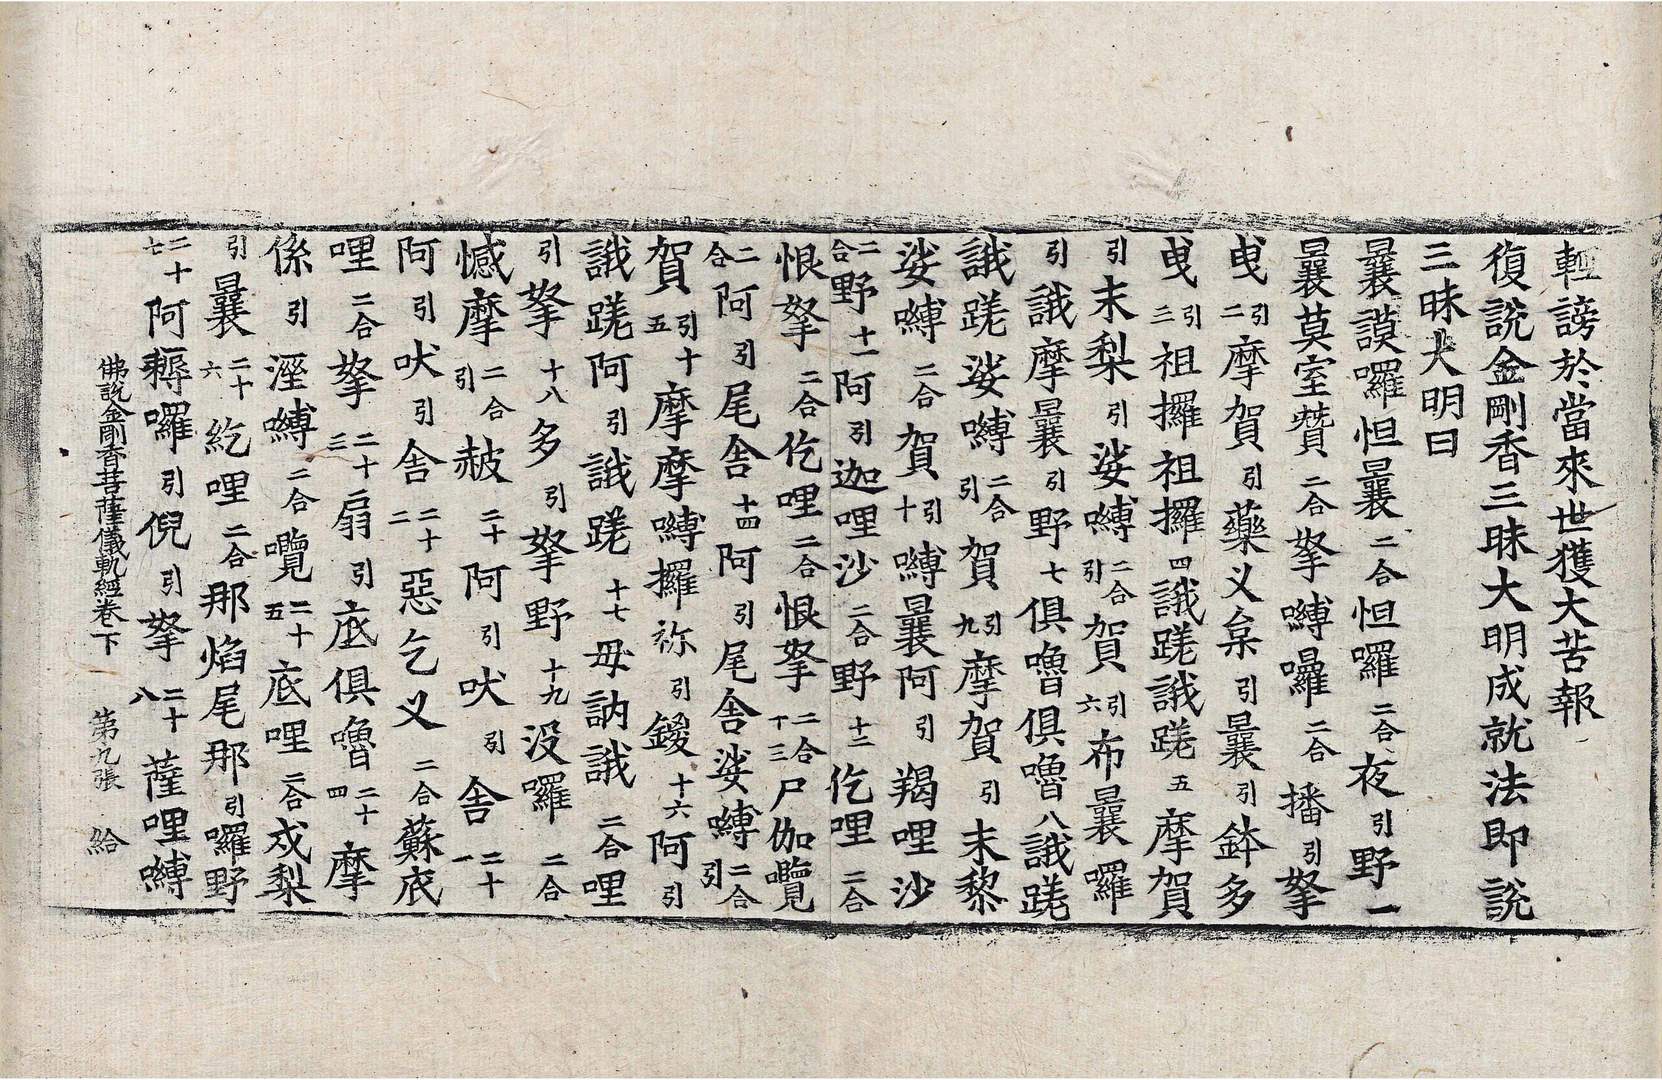 輕謗於當來世獲大苦報
復說金剛香三昧大明成就法即說
三昧大明曰
曩謨囉怛曩二合怛囉二合夜引野一
曩莫室贊二合拏嚩囉二合播引拏
曳引二摩賀引藥乂枲引曩引鉢多
曳引三祖攞祖攞四誐蹉誐蹉五摩賀
引末梨引娑嚩二合引賀引六布曩囉
引誐摩曩引野七俱嚕俱嚕八誐蹉
誐蹉娑嚩二合引賀引九摩賀引末黎
娑嚩二合賀引十嚩曩阿引羯哩沙
二合野十一阿引迦哩沙二合野十二仡哩二合
恨拏二合仡哩二合恨拏二合十三尸伽覽
二合阿引尾舍十四阿引尾舍娑嚩二合引
賀引十五摩摩嚩攞祢引鑁十六阿引
誐蹉阿引誐蹉十七毋訥誐二合哩
引拏十八多引拏野十九没囉二合
憾摩二合引赦二十阿引吠引舍二十一
阿引吠引舍二十二惡乞义二合蘇底
哩二合拏二十三扇引底俱嚕二十四摩
係引溼嚩二合覽二十五底哩二合戍梨
引曩二十六紇哩二合那焰尾那引囉野
二十七阿耨囉引倪引拏二十八薩哩嚩
佛說金剛香菩薩儀軌經卷下　第九張　給